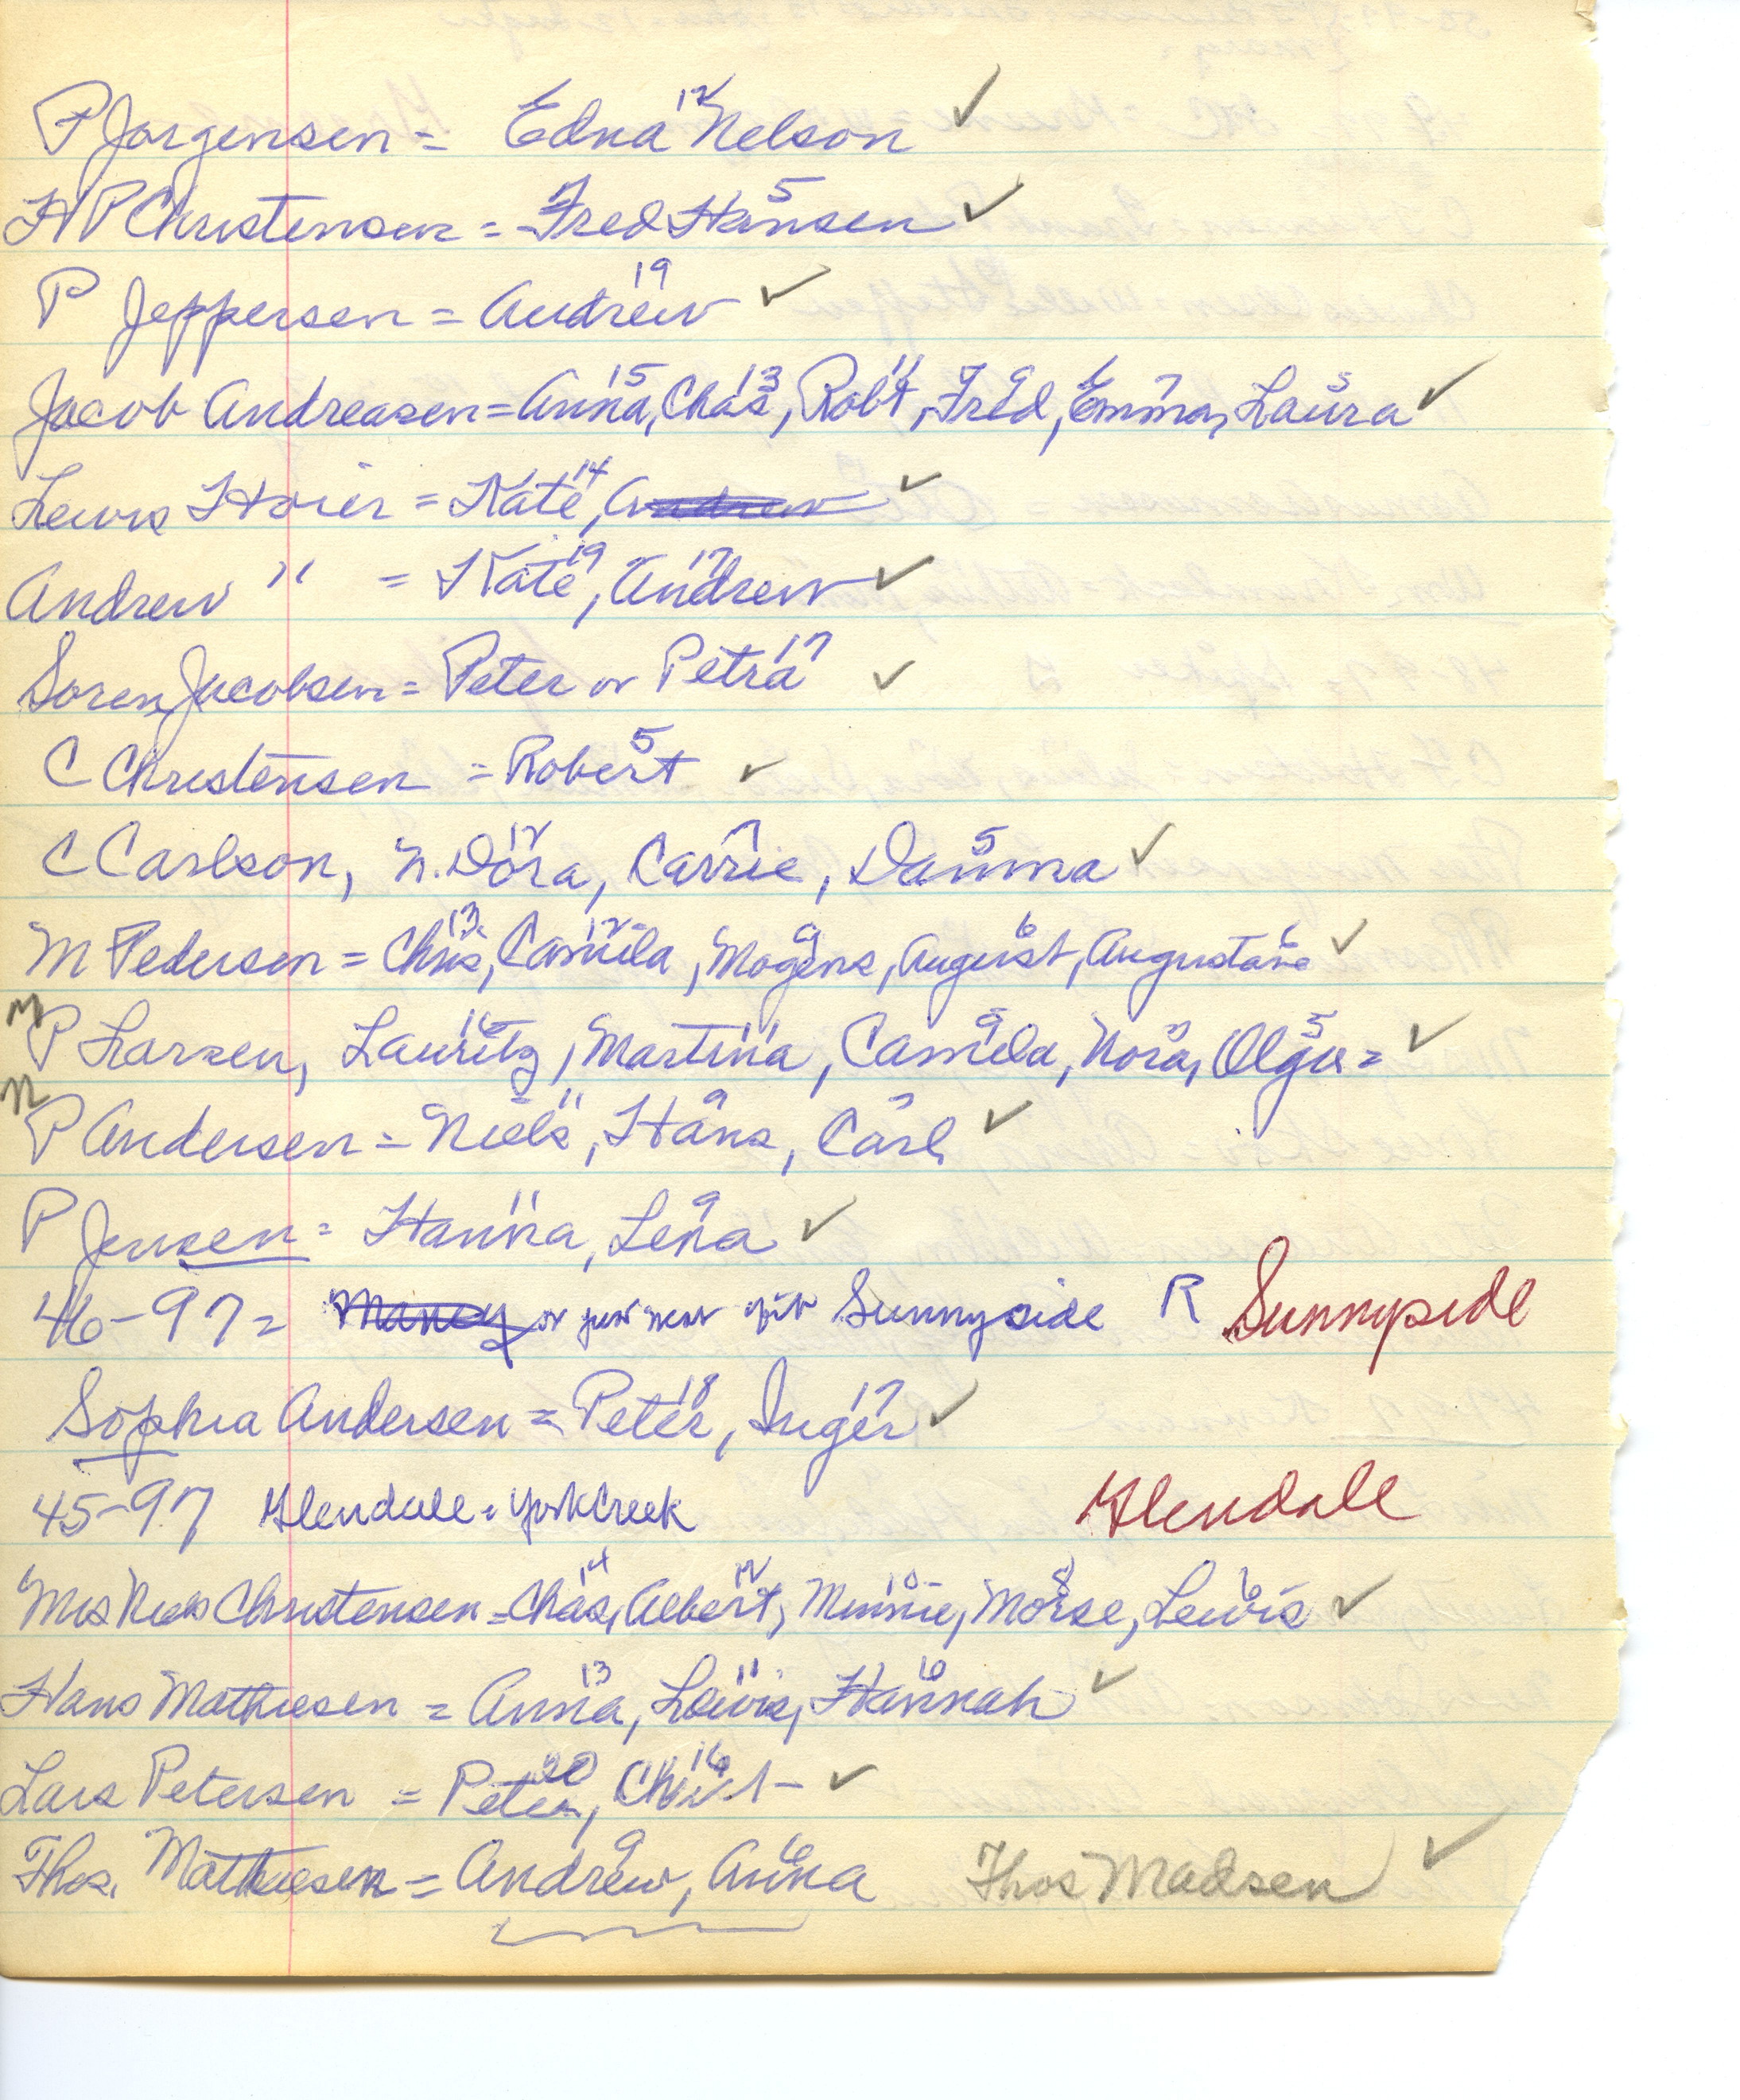 P Jorgensen = Edna 12 Nelson ✓
H P Christensen = Fred Hansen 5 ✓
P Jeppersen = Andrew 19 ✓
Jacob Andreasen = Anna 15, Chas 13, Robt 11, Fred 9, Emma 7, Laura 5 ✓
Lewis Hoier = Kate 14, Andrew ✓
Andrew " = Kate 19, Andrew 17 ✓
Soren Jacobsen = Peter or Petra 17 ✓
C Christensen = Robert 5 ✓
C Carlson, N. Dora 12, Carrie 7, Damma 5 ✓
M Pedersen = Chris 13, Camila 12, Mogens 9, August 6, Augustave 6 ✓
M P Larsen, Lauritz 16, Martina 11, Camela 9, Nora 7, Olga 5 = ✓
N P Andersen = Niels 11, Hans 9, Carl 7 ✓
P Jensen = Hanna 11, Lena 9 ✓
46-97 = Sunnyside R Sunnyside
Sophia Andersen = Peter 18, Inger 17 ✓
45-97 Glendale = York Creek Glendale
Mrs Niels Christensen = Chas 14, Albert 12, Minnie 10, Morse 8, Lewis 6 ✓
Hans Mathiesen = Anna 13, Lewis 11, Hannah 10 ✓
Lars Petersen = Peter 20, Christ 16 ✓
Thos. Mathiesen = Andrew 9, Anna 6 Thos Madsen ✓